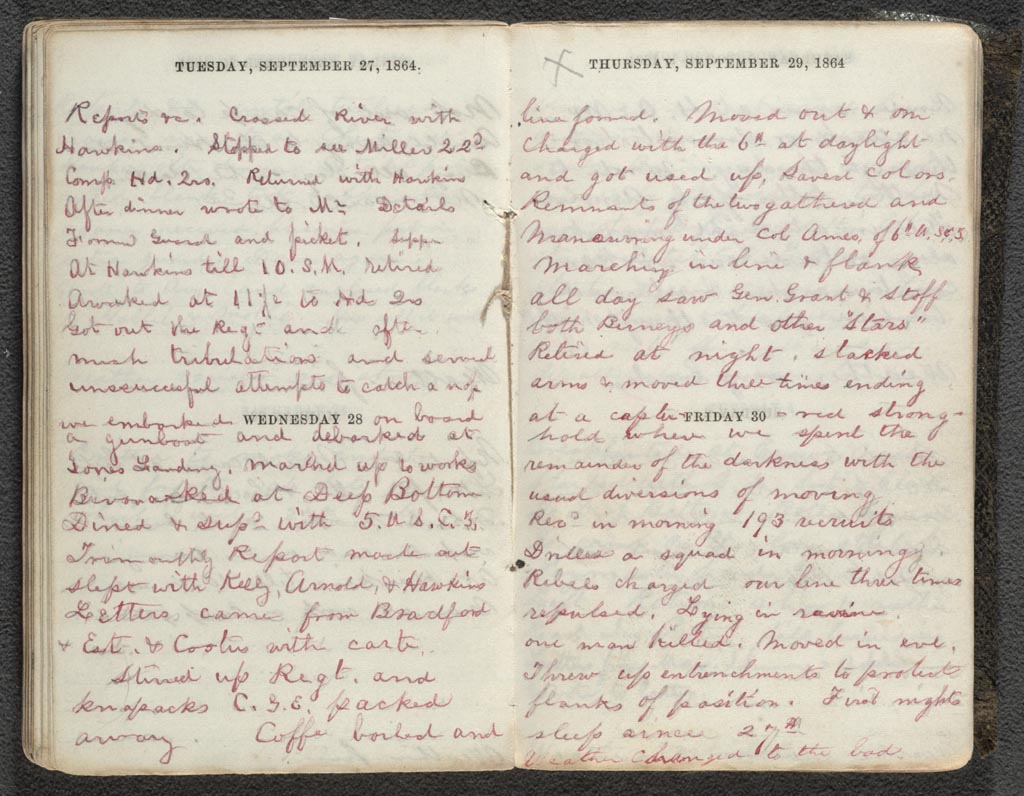 TUESDAY, SEPTEMBER 27, 1864.
Reports &c. Crossed River with
Hawkins. Stopped to see Miller 22d
Comp. Hd. Qrs. Returned with Hawkin
After dinner wrote to Mr Details
Guard and picket. Supper
At Hawkins till 10. S.M. retired
Awaked at 11½ to Hd Qrs
Got out the Regt and after
much tribulation and several
unsuccessful attempts to catch a nap
we embarked on board
WEDNESDAY 28
a gunboat and debarked at
Jones Landing. Marched up to works
Bivouacked at Deep Bottom
Dined & Supd with 5. U. S. C. T.
Trimonthly Report made out
slept with Kelly, Arnold, & Hawkins
Letters came from Bradford
& Est. & Coolis with carte.
Stired up Regt. and
knapsacks C. G. E. packed
away Coffe boiled and
THURSDAY, SEPTEMBER 29, 1864
line formed. Moved out & on
Charged with the 6th at daylight
and got used up, Saved Colors.
Remnants of the two gathered and
Manouvring under Col Ames, of 6th U.S.C.T.
Marching in line & flank
all day saw Gen. Grant & Staff
both Birneys and other "Stars"
Retired at night. stacked
arms & moved three times ending
at a captured strong-
FRIDAY 30
hold where we spent the
remainder of the darkness with the
usual diversions of moving
Recd in morning 193 recruits
Drilled a squad in morning.
Rebels charged our line three times
repulsed. Lying in ravine
one man killed. Moved in eve.
Threw up entrenchments to protect
flanks of position. First nights
sleep since 27th
Weather changed to the bad.